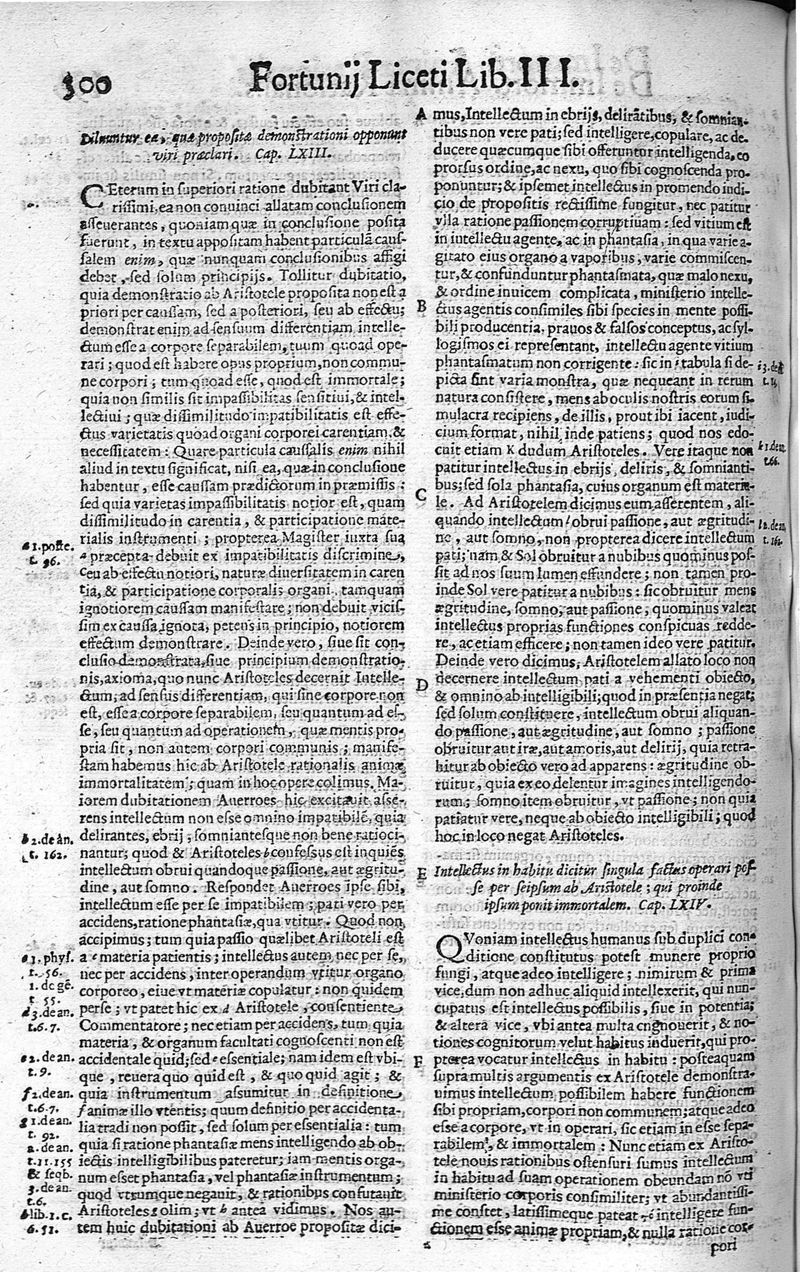 300
Fortunij Liceti Lib. III.
Diluuntur ea, quæ propositæ demonstrationi opponunt
viri præclari. Cap. LXIII.
CEterum in superiori ratione dubitant Viri cla-
rissimi, ea non conuinci allatam conclusionem
asseuerantes, quoniam quæ in conclusione posita
fuerunt, in textu appositam habent particulã caus-
salem enim, quæ nunquam conclusionibus affigi
debet, sed solum principijs. Tollitur dubitatio,
quia demonstratio ab Aristotele proposita non est a
priori per caussam, sed a posteriori, seu ab effectu;
demonstrat enim ad sensuum differentiam, intelle-
ctum esse a corpore separabilem, tuum quoad ope-
rari; quod est habere opus proprium, non commu-
ne corpori; tum quoad esse, quod est immortale;
quia non similis sit impassibilitas sensitiui, & intel-
lectiui; quæ dissimilitudo impatibilitatis est effe-
ctus varietatis quoad organi corporei carentiam, &
necessitatem: Quare particula caussalis enim nihil
aliud in textu significat, nisi ea, quæ in conclusione
habentur, esse caussam prædictorum in præmissis:
sed quia varietas impassibilitatis notior est, quam
dissimilitudo in carentia, & participatione mate-
rialis instrumenti; propterea Magister iuxta sua
a præcepta debuit ex impatibilitatis discrimine,
ceu ab effectu notiori, naturæ diuersitatem in caren
tia, & participatione corporalis organi, tamquam
ignotiorem caussam manifestare; non debuit vicis-
sim ex caussa ignota, petens in principio, notiorem
effectum demonstrare. Deinde vero, siue sit con-
clusio demonstrata, siue principium demonstratio-
nis, axioma, quo nunc Aristoteles decernit Intelle-
ctum; ad sensus differentiam, qui sine corpore non
est, esse a corpore separabilem, seu quantum ad es-
se, seu quantum ad operationem, quæ mentis pro-
pria sit, non autem corpori communis; manife-
stam habemus hic ab Aristotele rationalis animæ
immortalitatem; quam in hoc opere colimus. Ma-
iorem dubitationem Auerroes hic excitauit asse-
rens intellectum non esse omnino impatibilē, quia
delirantes, ebrij, somniantesque non bene ratioci-
nantur; quod & Aristoteles b confessus est inquies
intellectum obrui quandoque passione, aut ægritu-
dine, aut somno. Respondet Auerroes ipse sibi,
intellectum esse per se impatibilem; pati vero per
accidens, ratione phantasiæ, qua vtitur. Quod non
accipimus; tum quia passio quælibet Aristoteli est
a c materia patientis; intellectus autem, nec per se,
nec per accidens, inter operandum vtitur organo
corporeo, eiue vt materiæ copulatur: non quidem
per se; vt patet hic ex d Aristotele, consentiente
Commentatore; nec etiam per accidens, tum quia
materia, & organum facultati cognoscenti non est
accidentale quid; sed e essentiale; nam idem est vbi-
que, reuera quo quid est, & quo quid agit; &
quia instrumentum assumitur in definitione
f animæ illo vtentis; quum definitio per accidenta-
lia tradi non possit, sed solum per essentialia: tum
quia si ratione phantasiæ mens intelligendo ab ob-
iectis intelligibilibus pateretur; iam mentis orga-
num esset phantasia, vel phantasiæ instrumentum;
quod vtrumque negauit, & rationibus confutauit
Aristoteles g olim; vt h antea vidimus. Nos au-
tem huic dubitationi ab Auerroe propositæ dici-
a 1. poste.
t. 96.
b 2. de an.
t. 162.
c 3. phys.
t. 56.
1. de gē.
t. 55.
d 3. de an.
t. 6. 7.
e 2. de an.
t. 9.
f 2. de an.
t. 6. 7.
g 1. de an.
t. 92.
2. de an.
t. 11. 155
& seqb.
3. de an.
t. 6.
h lib. 1. c.
6. 51.
A mus, Intellectum in ebrijs, delirãtibus, & somnian-
tibus non vere pati; sed intelligere, copulare, ac de-
ducere quæcumque sibi offeruntur intelligenda, eo
prorsus ordine, ac nexu, quo sibi cognoscenda pro-
ponuntur; & ipsemet intellectus in promendo iudi-
cio de propositis rectissime fungitur, nec patitur
vlla ratione passionem corruptiuam: sed vitium est
in intellectu agente, ac in phantasia, in qua varie a-
gitato eius organo a vaporibus, varie commiscen-
tur, & confunduntur phantasmata, quæ malo nexu,
& ordine inuicem complicata, ministerio intelle-
B ctus agentis consimiles sibi species in mente possi-
bili producentia, prauos & falsos conceptus, ac syl-
logismos ei representant, intellectu agente vitium
phantasmatum non corrigente: sic in i tabula si de-
picta sint varia monstra, quæ nequeant in rerum
natura consistere, mens ab oculis nostris eorum si-
mulacra recipiens, de illis, prout ibi iacent, iudi-
cium format, nihil inde patiens; quod nos edo-
cuit etiam K dudum Aristoteles. Vere itaque non
patitur intellectus in ebrijs, deliris, & somnianti-
bus; sed sola phantasia, cuius organum est materia-
C le. Ad Aristotelem dicimus eum asserentem, ali-
quando intellectum l obrui passione, aut ægritudi-
ne, aut somno, non propterea dicere intellectum
pati; nam & Sol obruitur a nubibus quominus pos-
sit ad nos suum lumen effundere; non tamen pro-
inde Sol vere patitur a nubibus: sic obruitur mens
ægritudine, somno, aut passione, quominus valeat
intellectus proprias functiones conspicuas redde-
re, ac etiam efficere; non tamen ideo vere patitur.
Deinde vero dicimus, Aristotelem allato loco non
D decernere intellectum pati a vehementi obiecto,
& omnino ab intelligibili; quod in præsentia negat;
sed solum constituere, intellectum obrui aliquan-
do passione, aut ægritudine, aut somno; passione
obruitur aut iræ, aut amoris, aut delirij, quia retra-
hitur ab obiecto vero ad apparens: ægritudine ob-
ruitur, quia ex eo delentur imagines intelligendo-
rum; somno item obruitur, vt passione; non quia
patiatur vere, neque ab obiecto intelligibili; quod
hoc in loco negat Aristoteles.
E Intellectus in habitu dicitur singula factus operari pos-
se per seipsum ab Aristotele; qui proinde
ipsum ponit immortalem. Cap. LXIV.
QVoniam intellectus humanus sub duplici con-
ditione constitutus potest munere proprio
fungi, atque adeo intelligere; nimirum & prima
vice, dum non adhuc aliquid intellexerit, qui nun-
cupatus est intellectus possibilis, siue in potentia;
& altera vice, vbi antea multa cognouerit, & no-
tiones cognitorum velut habitus induerit, qui pro-
F pterea vocatur intellectus in habitu: posteaquam
supra multis argumentis ex Aristotele demonstra-
uimus intellectum possibilem habere functionem
sibi propriam, corpori non communem; atque adeo
esse a corpore, vt in operari, sic etiam in esse sepa-
rabilem, & immortalem: Nunc etiam ex Aristo-
tele nouis rationibus ostensuri sumus intellectum
in habitu ad suam operationem obeundam nõ vti
ministerio corporis consimiliter; vt abundantissi-
me constet, latissimeque pateat intelligere fun-
ctionem esse animæ propriam, & nulla ratione cor-
pori
i 3. de
k 1. de an.
t. 66.
l 2. de an.
t. 162.